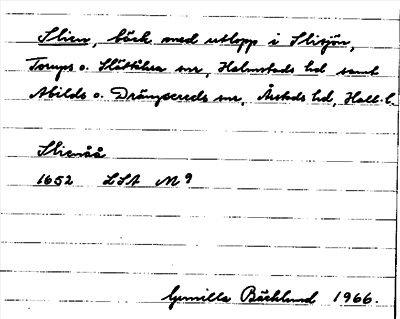 Slien, bäck med utlopp i Slisjön,
Torups o. Slättåkra snr, Halmstads hd samt
Abilds o. Drängsereds snr, Årstads hd, Hall. l.
Slienåå
1652 LSA N 9
Gunilla Bäcklund 1966.